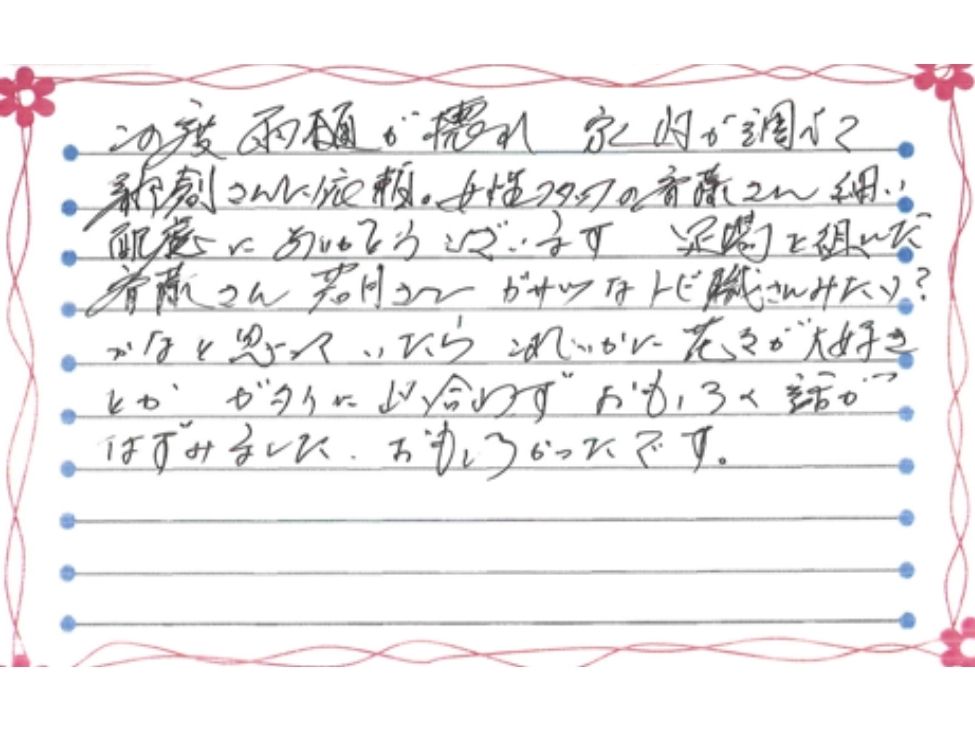 この度 雨樋が壊れ 家内が調べて
新創さんに依頼。女性スタッフの斉藤さん 細い
配慮にありがとうございます 足場を組んだ
斉藤さん 若月さん ガサツなトビ職さんみたい?
かなと思っていたら これいがいに 花々が大好き
とか ガタイに似合わず おもしろく 話が
はずみました、おもしろかったです。